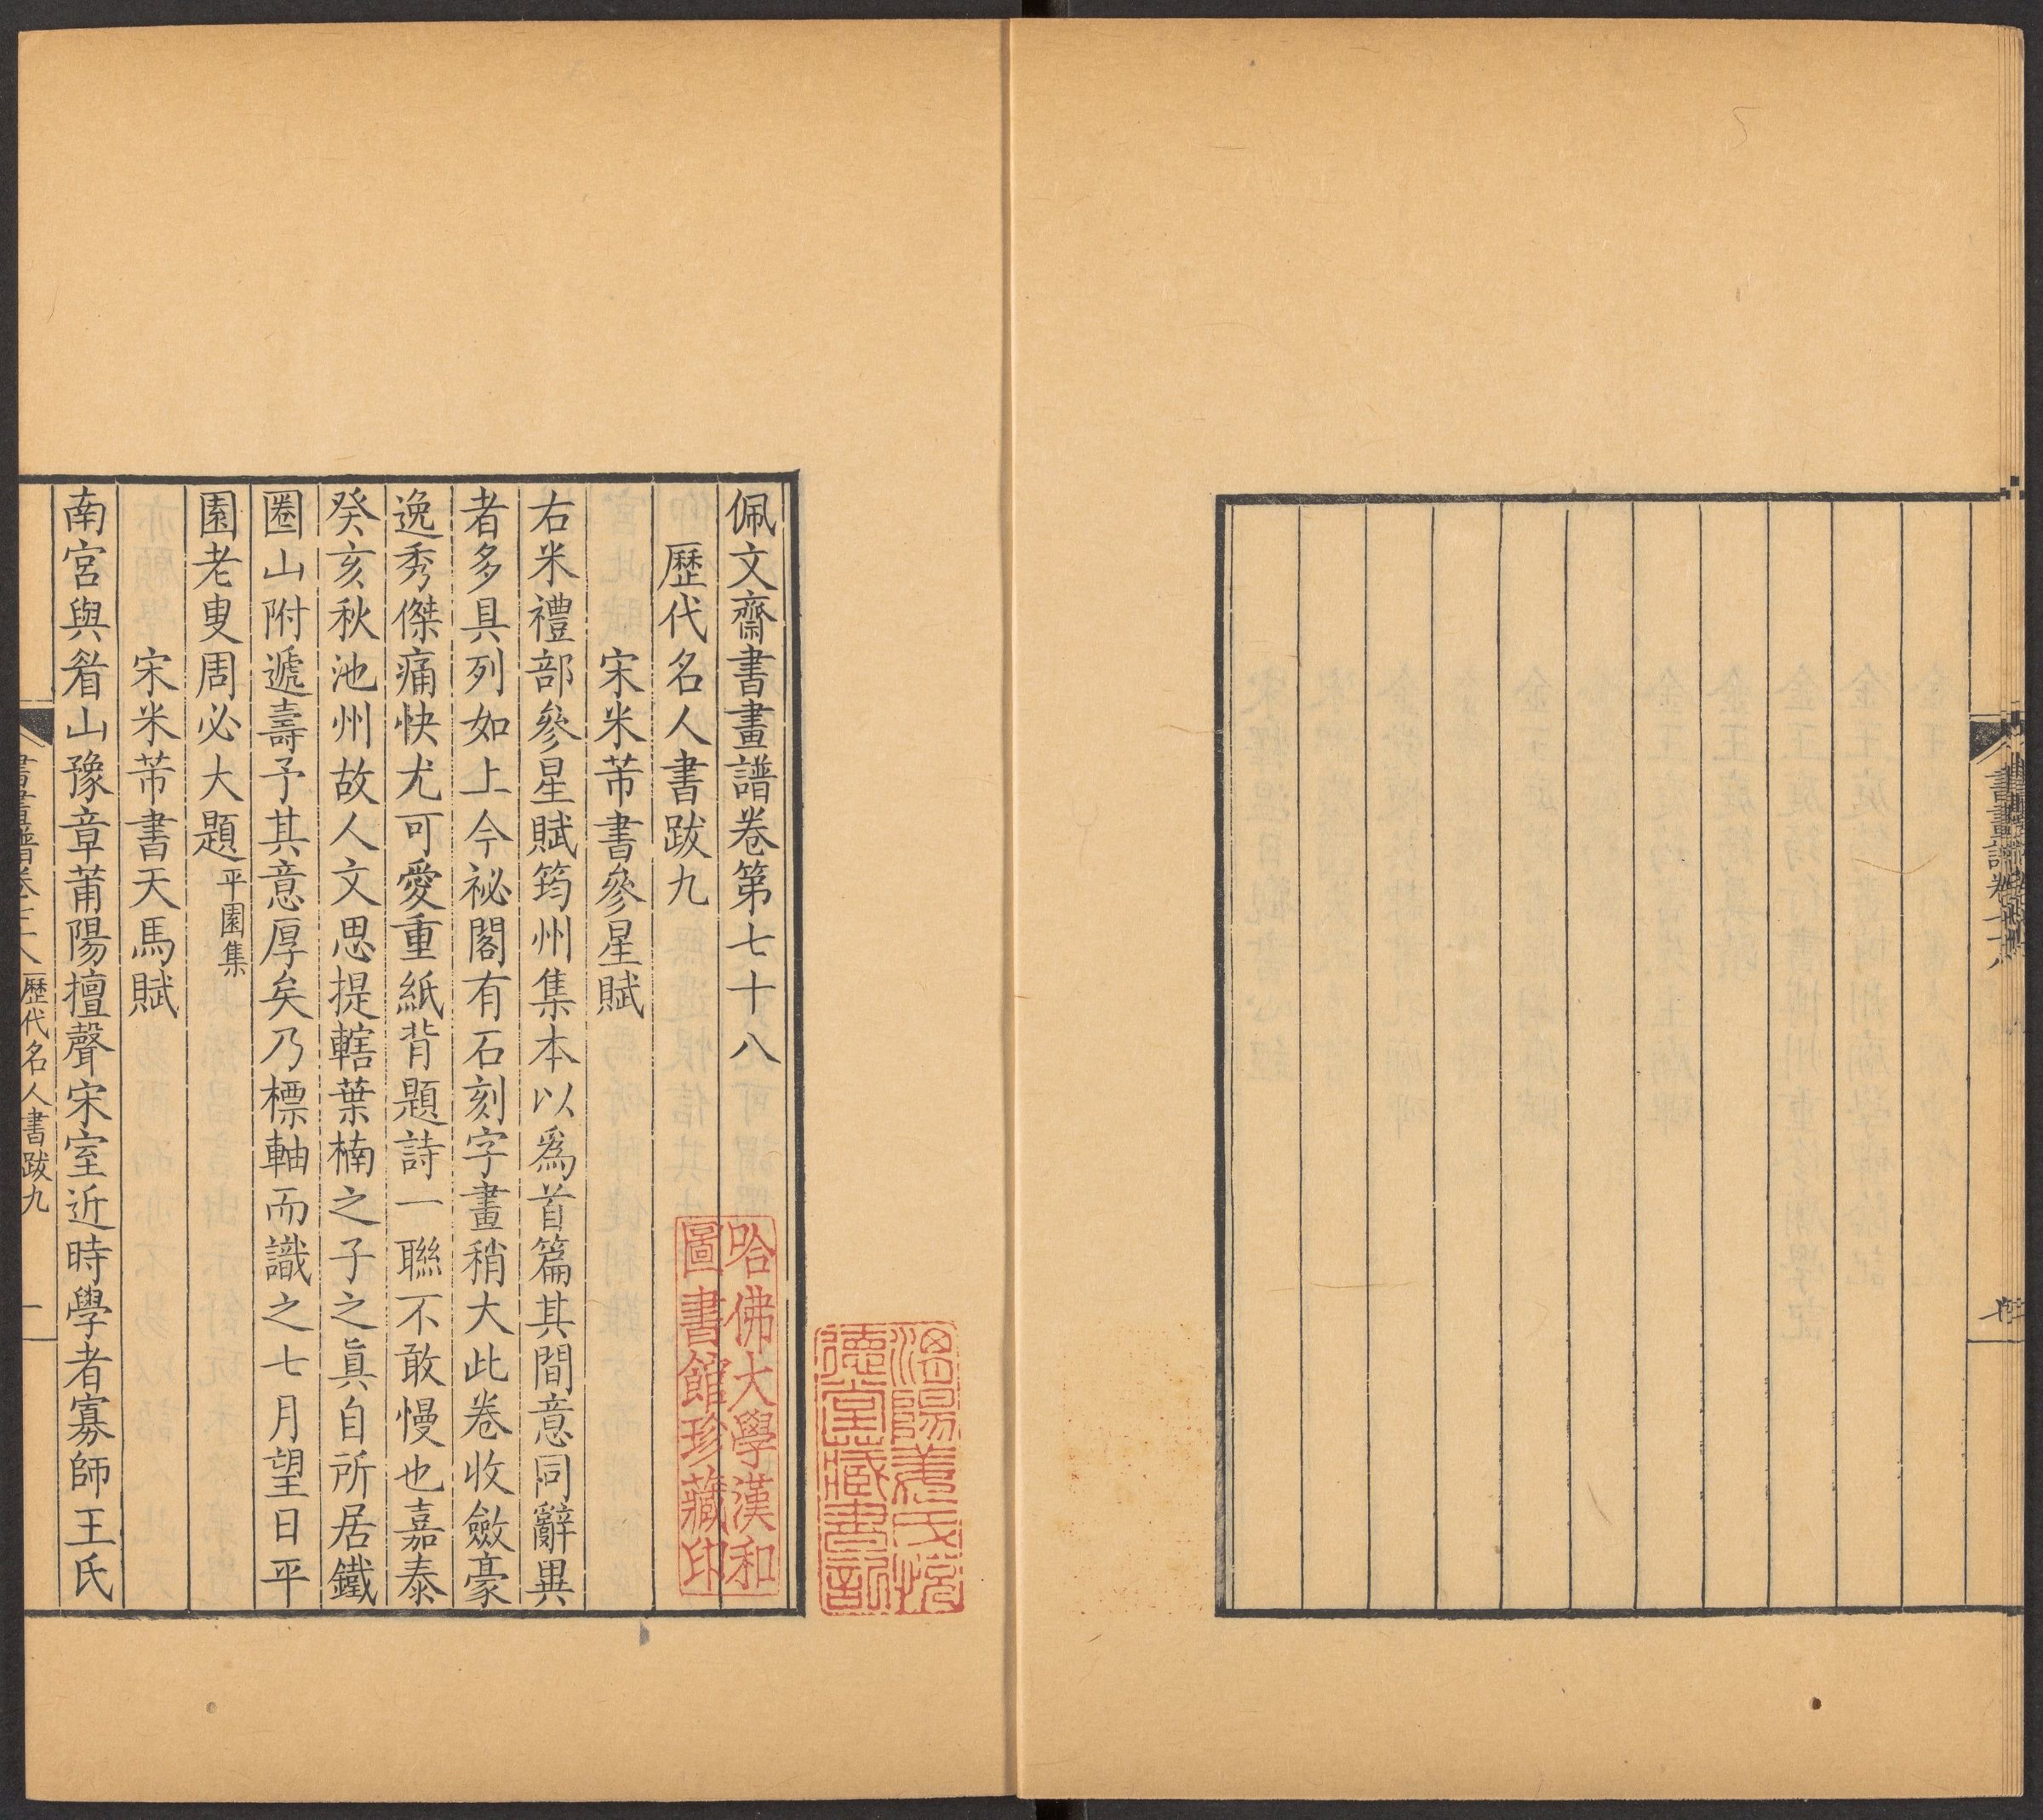 佩文齋書畫譜卷第七十八
歷代名人書跋九
宋米芾書參星賦
右米禮部參星賦筠州集本以爲首篇其間意同辭異
者多具列如上今祕閣有石刻字畫稍大此卷收斂豪
逸秀傑痛快尤可愛重紙背題詩一聯不敢慢也嘉泰
癸亥秋池州故人文思提轄葉楠之子之眞自所居鐵
圈山附遞壽予其意厚矣乃標軸而識之七月望日平
園老叟周必大題 平園集
宋米芾書天馬賦
南宮與眘山豫章莆陽擅聲宋室近時學者寡師王氏
歷代名人書跋九
一
哈佛大學漢和
圖書館珍藏印
德堂藏書記